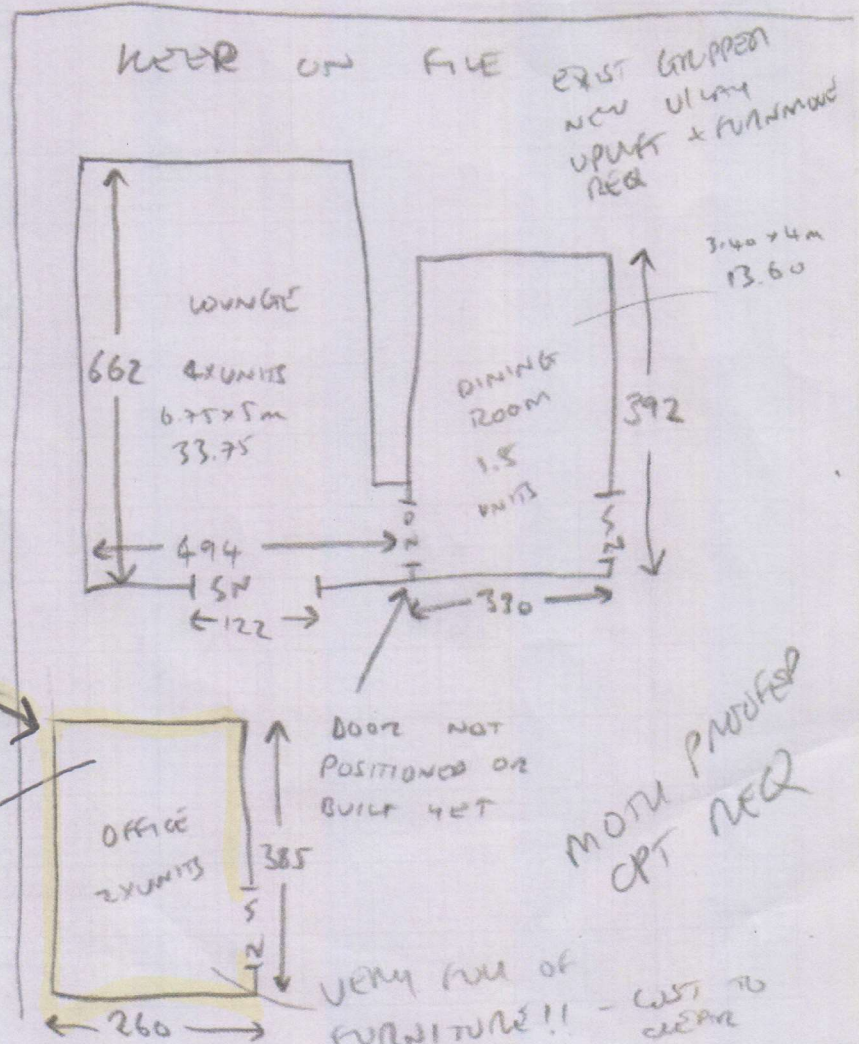 KEEP ON FILE
EXIST GRIPPER
NEW U/LAY
UPLIFT + FURNMOVE
REQ
3.40 x 4m
13.60
LOUNGE
4x UNITS
6.75 x 5m
33.75
662
494
SN
122
DINING
ROOM
1.5
UNITS
392
390
DOOR NOT
POSITIONED OR
BUILT YET
OFFICE
2x UNITS
385
260
MOTH PROOFED
CPT REQ
VERY FULL OF
FURNITURE!! - COST TO
CLEAR